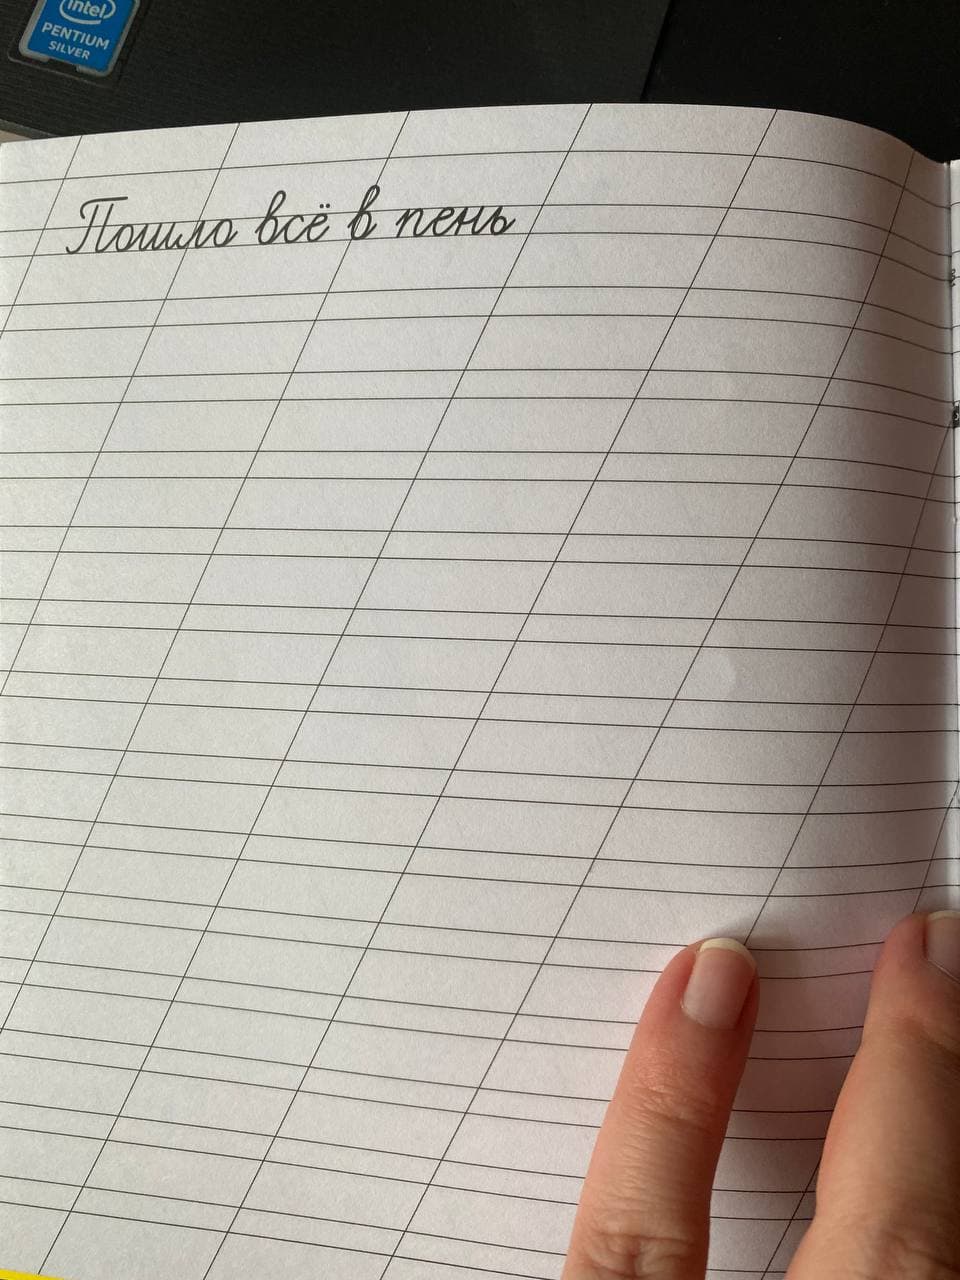 intel
PENTIUM
SILVER
Пошло всё в пень